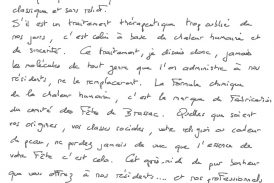 classique et son relief.
S'il est un traitement thérapeutique trop oublié de
nos jours, c'est celui à base de chaleur humaine et
de sincérité. Ce traitement, je disais donc, jamais
les molécules de tout genre que l'on administre à nos
résidents, ne le remplaceront. La Formule chimique
de la chaleur humaine, c'est la marque de Fabrication
du comité des Fête de Brassac. Quelles que soient
vos origines, vos classes sociales, votre religion ou couleur
de peau, ne perdez jamais de vue que l'essence de
votre Fête c'est cela. Cet après-midi de pur bonheur
que vous offrez à nos résidents.... et nos professionnels